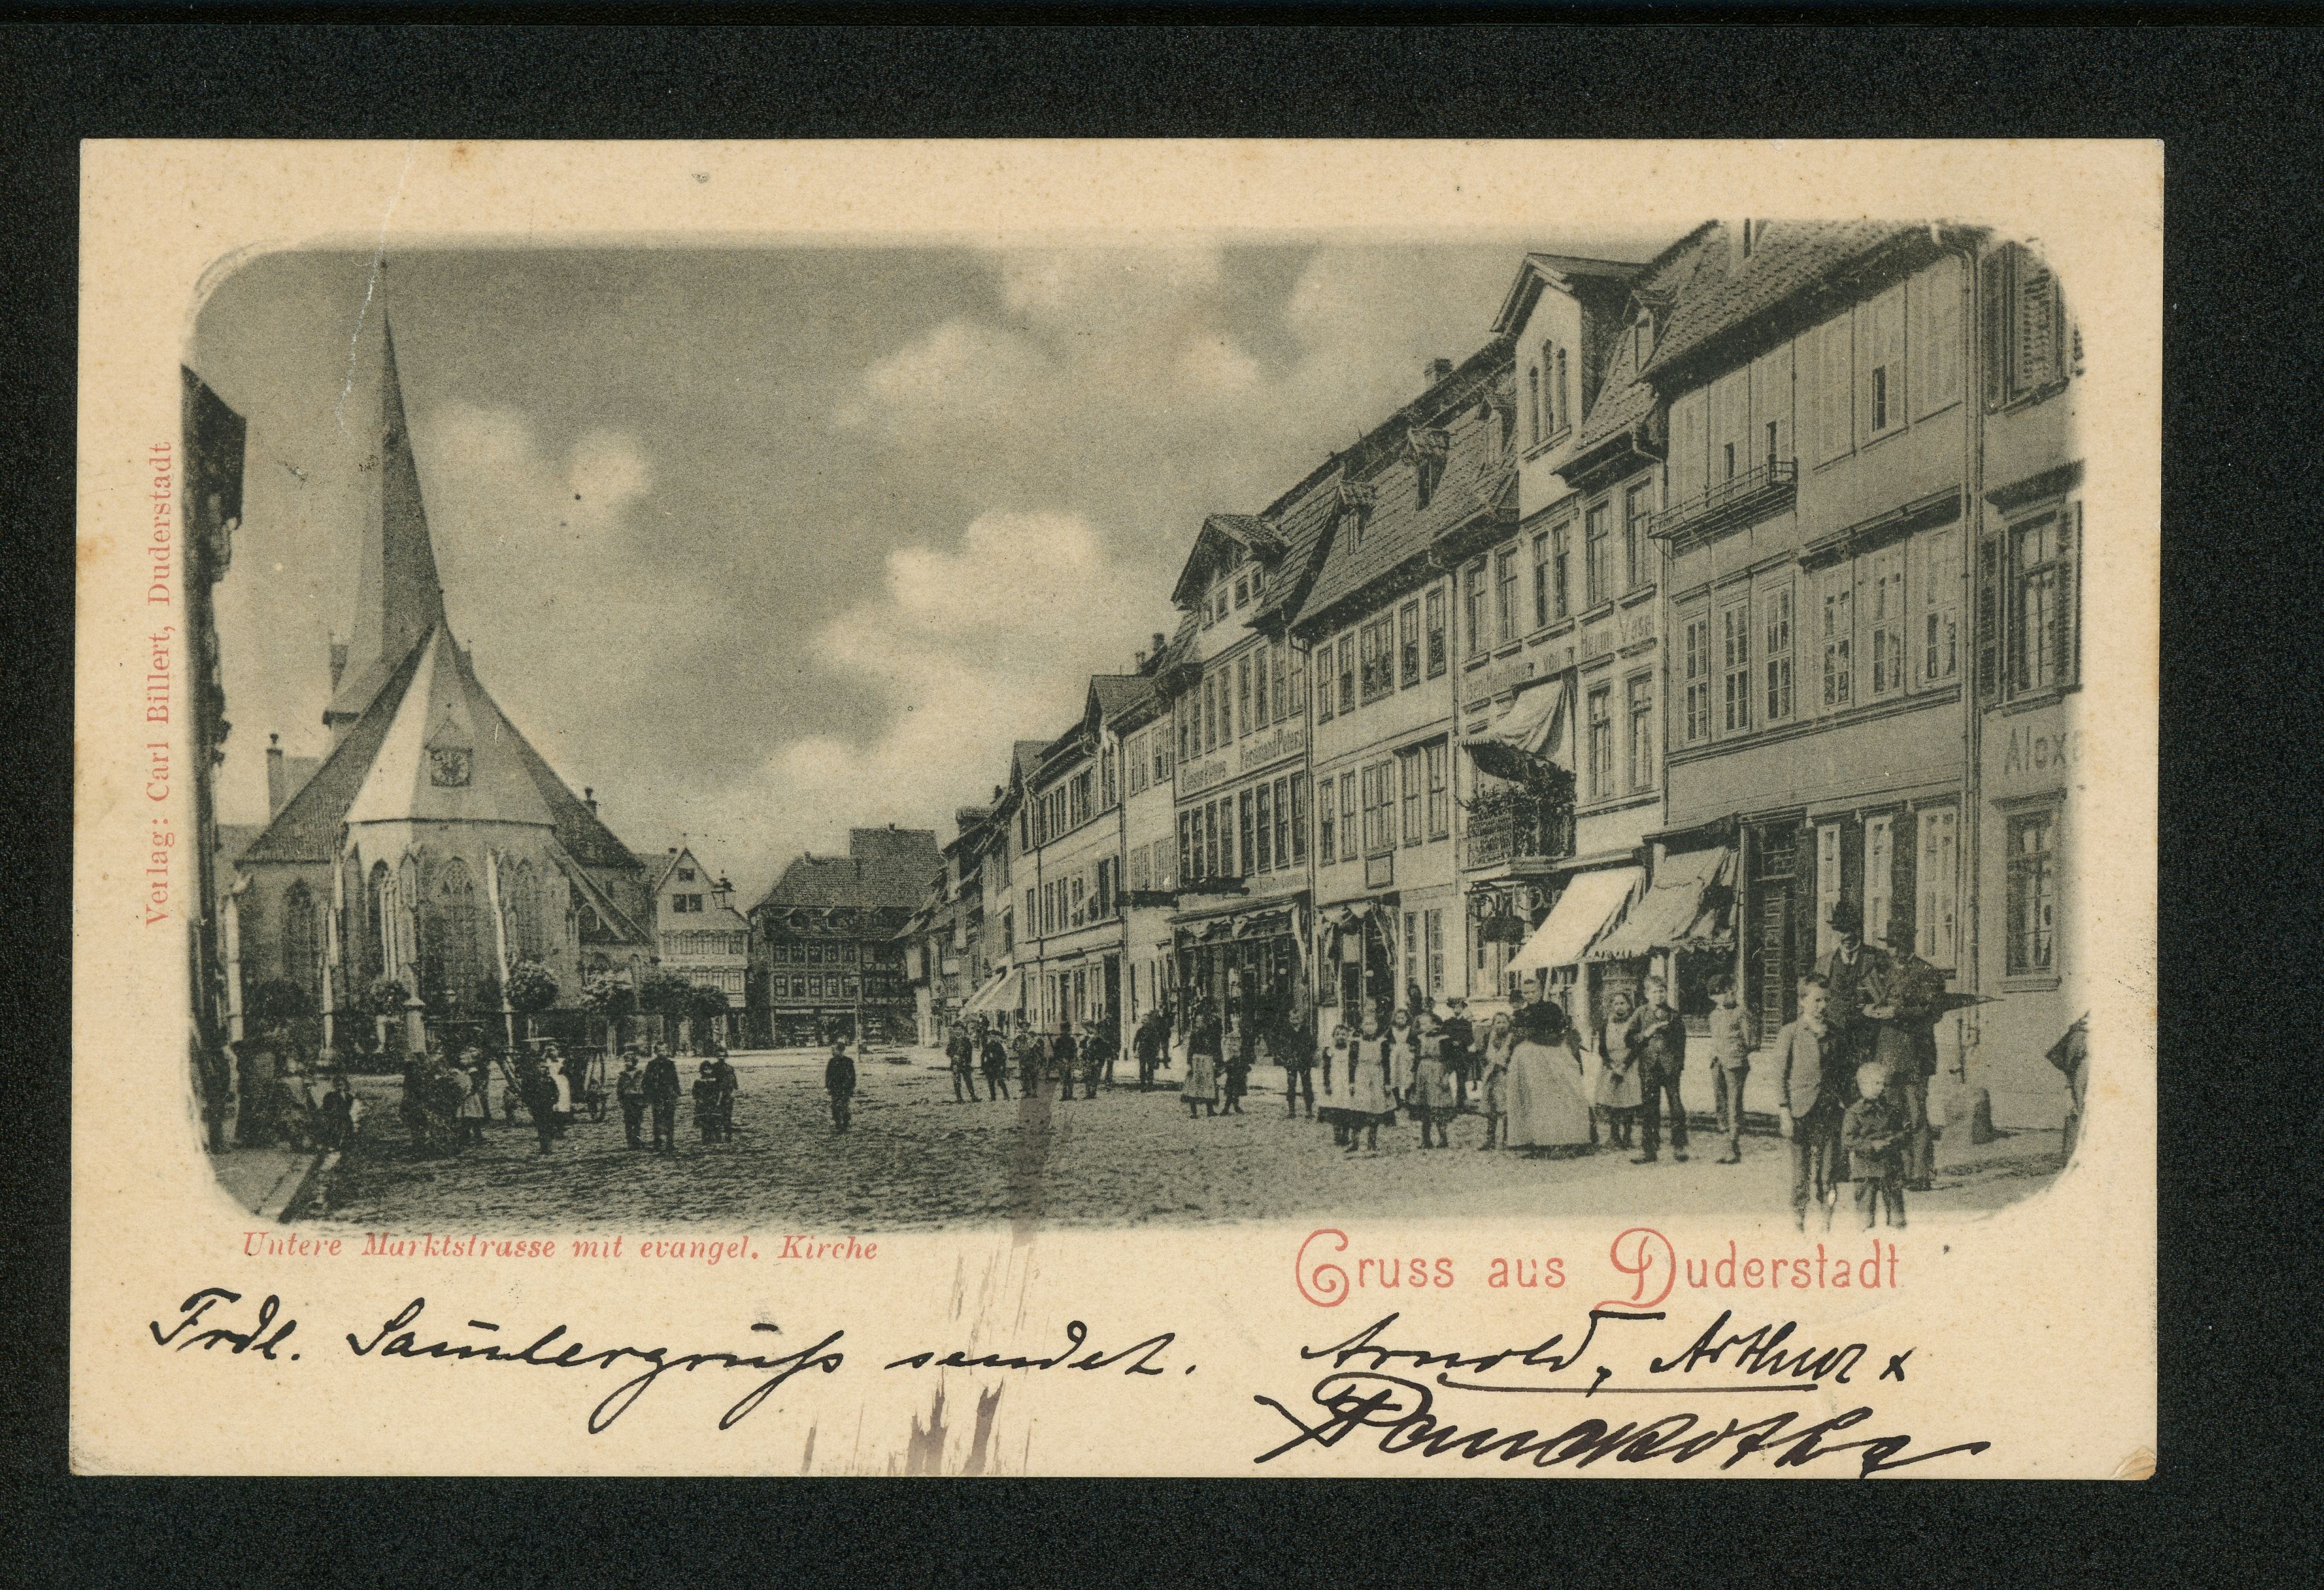 Verlag: Carl Billert, Duderstadt
Ferdinand Peters
von Herm. Vase
Alex
Untere Marktstrasse mit evangel. Kirche
Gruss aus Duderstadt
Frdl. Sam̄lergruß sendet.
Arnold, Arthur